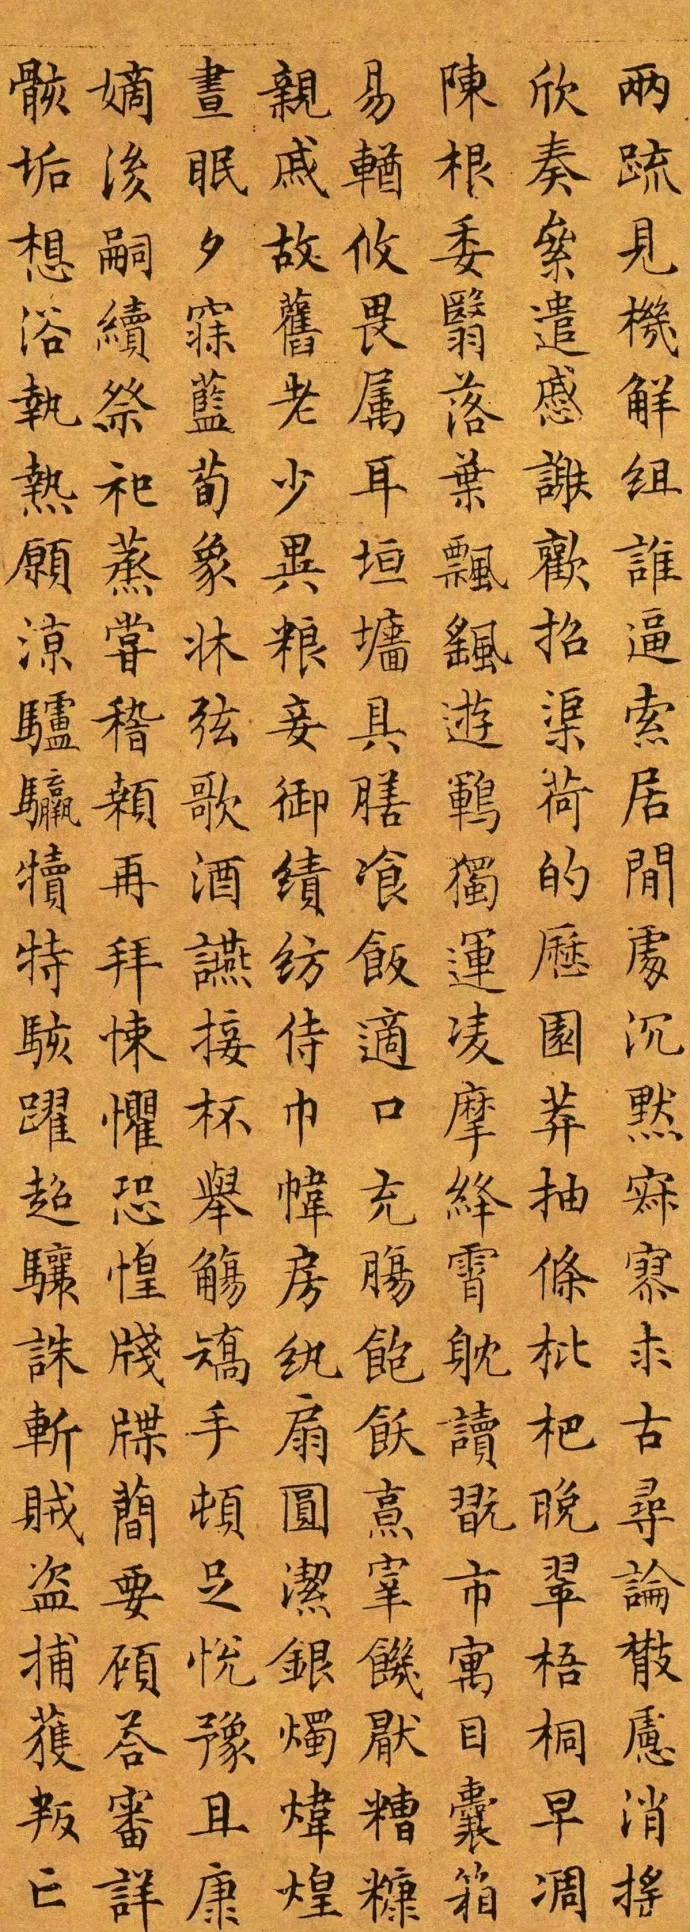 兩疏見機解組誰逼索居閒處沉默寂寥求古尋論散慮消搖
欣奏累遣慼謝歡招渠荷的歷園莽抽條枇杷晚翠梧桐早凋
陳根委翳落葉飄颻遊鵾獨運凌摩絳霄耽讀翫市寓目囊箱
易輶攸畏属耳垣墻具膳飡飯適口充腸飽飫烹宰饑厭糟糠
親戚故舊老少異粮妾御績紡侍巾帷房紈扇圓潔銀燭煒煌
晝眠夕寐藍荀象牀弦歌酒讌接杯舉觴矯手頓足悅豫且康
嫡後嗣續祭祀蒸嘗稽顙再拜悚懼恐惶牋牒蕳要顧荅審詳
骸垢想浴執熱願凉驢驘犢特駭躍超驤誅斬賊盗捕獲叛亡